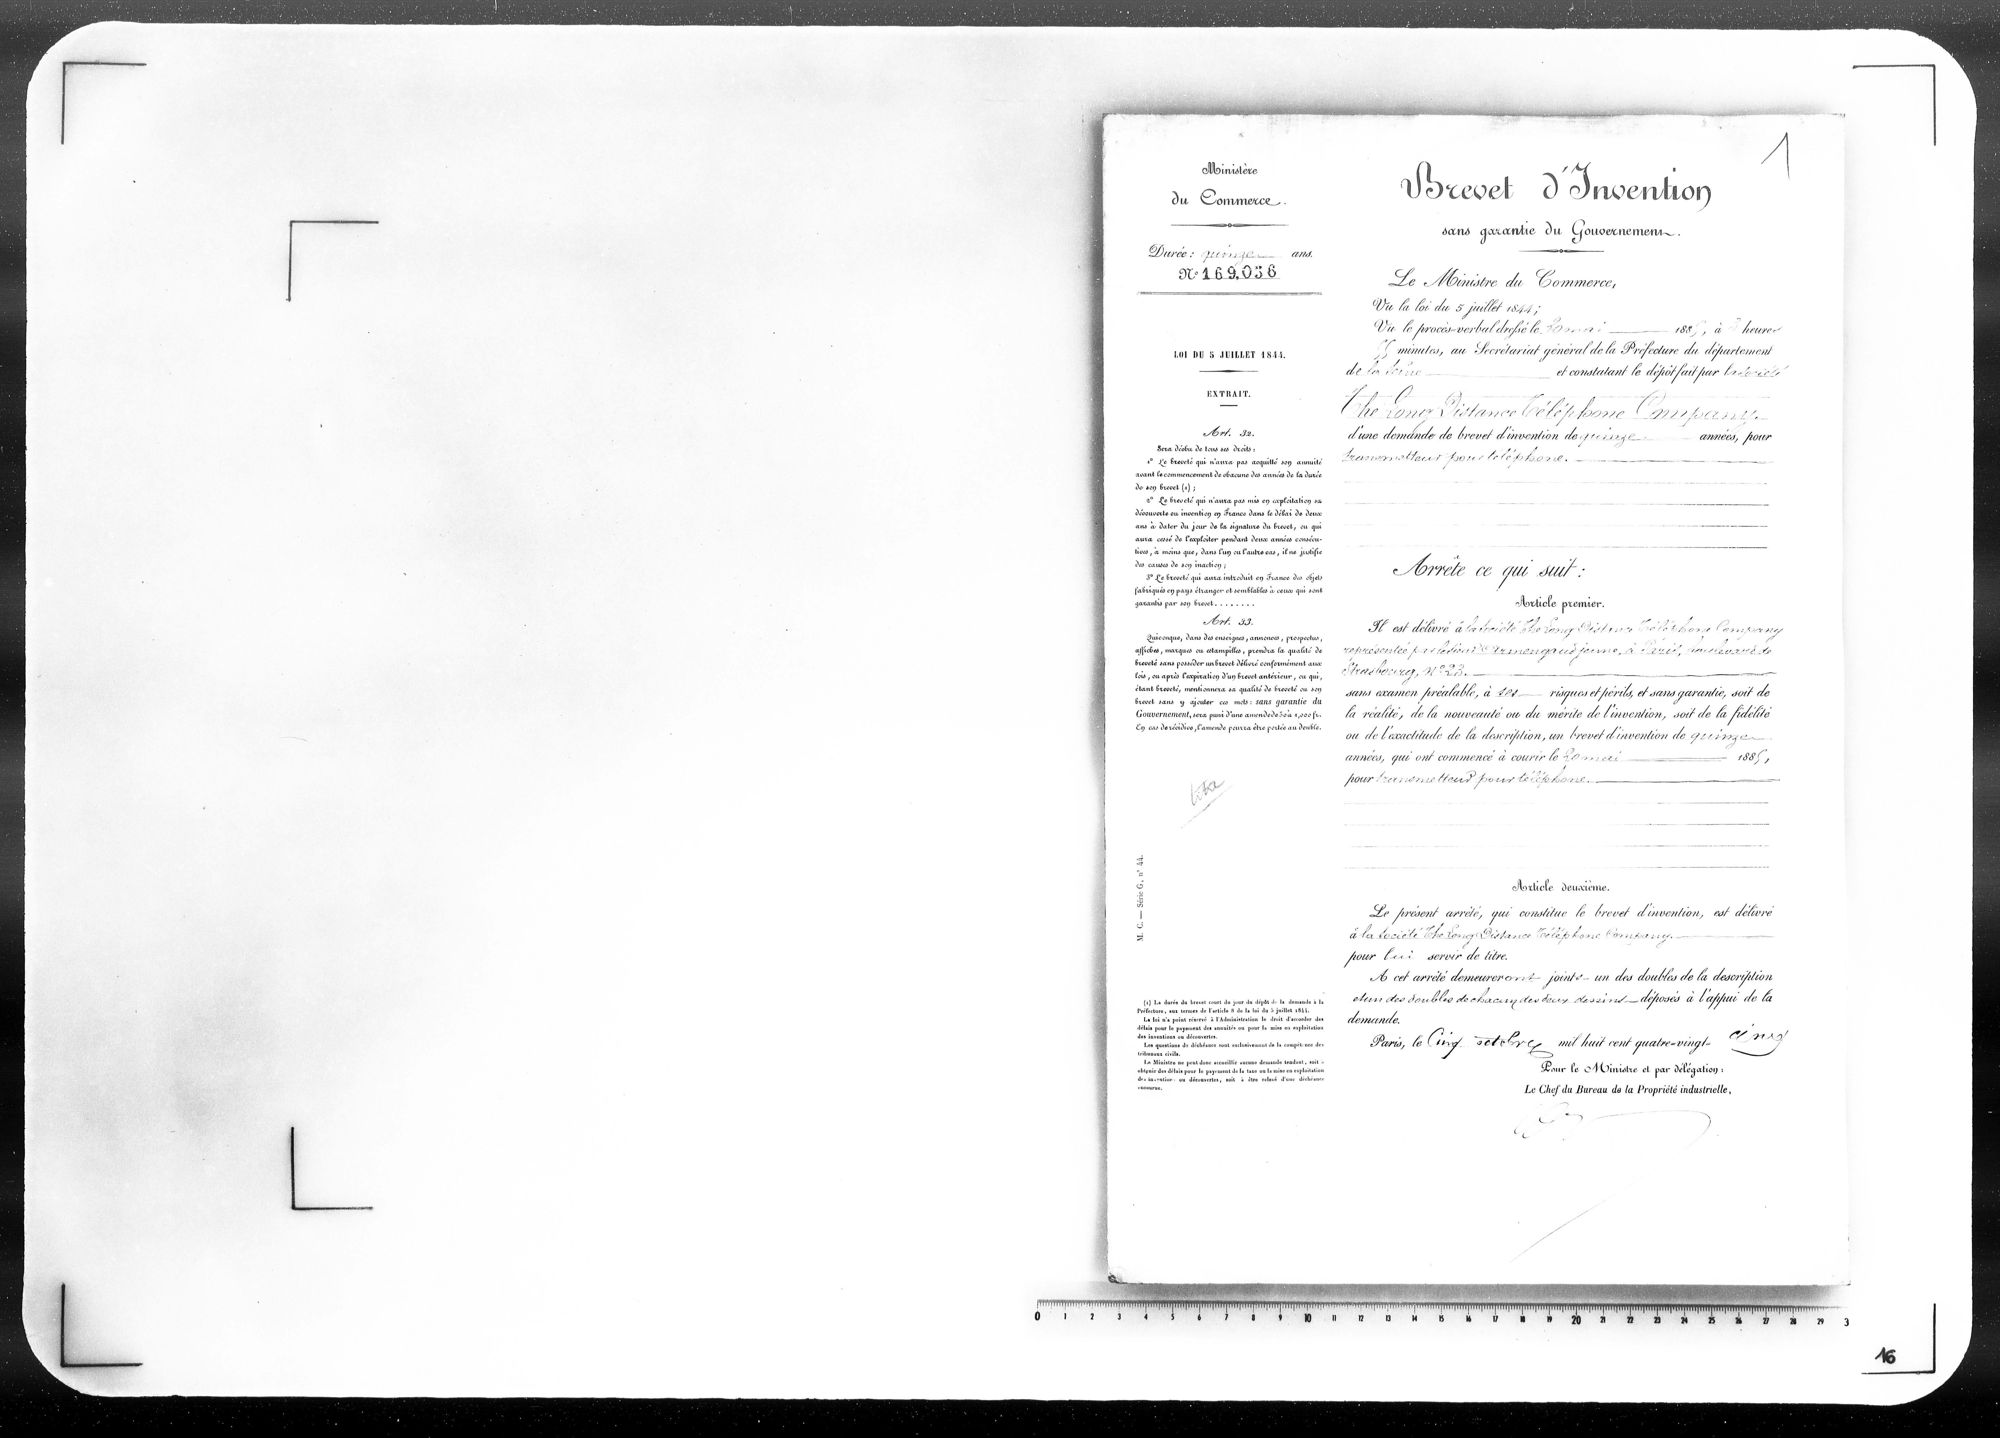 1
Ministère
du Commerce.
Durée: quinze ans.
N° 169,036
LOI DU 5 JUILLET 1844.
EXTRAIT.
Art. 32.
Sera déchu de tous ses droits:
1° Le breveté qui n'aura pas acquitté son annuité
avant le commencement de chacune des années de la durée
de son brevet (1);
2° Le breveté qui n'aura pas mis en exploitation sa
découverte ou invention en France dans le délai de deux
ans à dater du jour de la signature du brevet, ou qui
aura cessé de l'exploiter pendant deux années consécu-
tives, à moins que, dans l'un ou l'autre cas, il ne justifie
des causes de son inaction;
3° Le breveté qui aura introduit en France des objets
fabriqués en pays étranger et semblables à ceux qui sont
garantis par son brevet........
Art. 33.
Quiconque, dans des enseignes, annonces, prospectus,
affiches, marques ou estampilles, prendra la qualité de
breveté sans posséder un brevet délivré conformément aux
lois, ou après l'expiration d'un brevet antérieur, ou qui,
étant breveté, mentionnera sa qualité de breveté ou son
brevet sans y ajouter ces mots: sans garantie du
Gouvernement, sera puni d'une amende de 50 à 1,000 fr.
En cas de récidive, l'amende pourra être portée au double.
M. C. — Série G, n° 44.
(1) La durée du brevet court du jour du dépôt de la demande à la
Préfecture, aux termes de l'article 8 de la loi du 5 juillet 1844.
La loi n'a point réservé à l'Administration le droit d'accorder des
délais pour le payement des annuités ou pour la mise en exploitation
des inventions ou découvertes.
Les questions de déchéance sont exclusivement de la compétence des
tribunaux civils.
Le Ministre ne peut donc accueillir aucune demande tendant, soit à
obtenir des délais pour le payement de la taxe ou la mise en exploitation
des inventions ou découvertes, soit à être relevé d'une déchéance
encourue.
Brevet d'Invention
sans garantie du Gouvernement.
Le Ministre du Commerce,
Vu la loi du 5 juillet 1844;
Vu le procès-verbal dressé le 20 mai 1885, à heures
55 minutes, au Secrétariat général de la Préfecture du département
de la Seine et constatant le dépôt fait par la société
The Long Distance Téléphone Company
d'une demande de brevet d'invention de quinze années, pour
transmetteur pour téléphone.
Arrête ce qui suit:
Article premier.
Il est délivré à la société The Long Distance Téléphone Company
représentée par le sieur Armengaud jeune, à Paris, boulevard de
Strasbourg, N° 23.
sans examen préalable, à ses risques et périls, et sans garantie, soit de
la réalité, de la nouveauté ou du mérite de l'invention, soit de la fidélité
ou de l'exactitude de la description, un brevet d'invention de quinze
années, qui ont commencé à courir le 20 mai 1885,
pour transmetteur pour téléphone.
Article deuxième.
Le présent arrêté, qui constitue le brevet d'invention, est délivré
à la société The Long Distance Téléphone Company
pour lui servir de titre.
A cet arrêté demeureront joints un des doubles de la description
et un des doubles de chacun des deux dessins déposés à l'appui de la
demande.
Paris, le Cinq octobre mil huit cent quatre-vingt- cinq
Pour le Ministre et par délégation:
Le Chef du Bureau de la Propriété industrielle,
0 1 2 3 4 5 6 7 8 9 10 11 12 13 14 15 16 17 18 19 20 21 22 23 24 25 26 27 28 29 3
16